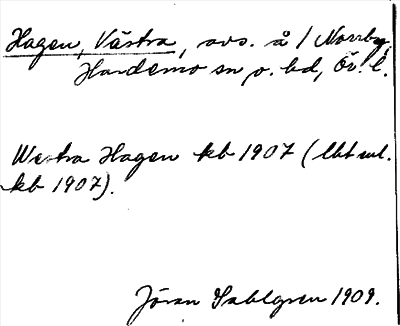 Hagen, Västra, avs. å 1 Norrby,
Hardemo sn o. hd, Ör. l.
Westra Hagen kb 1907 (lbt enl.
kb 1907).
Jöran Sahlgren 1909.